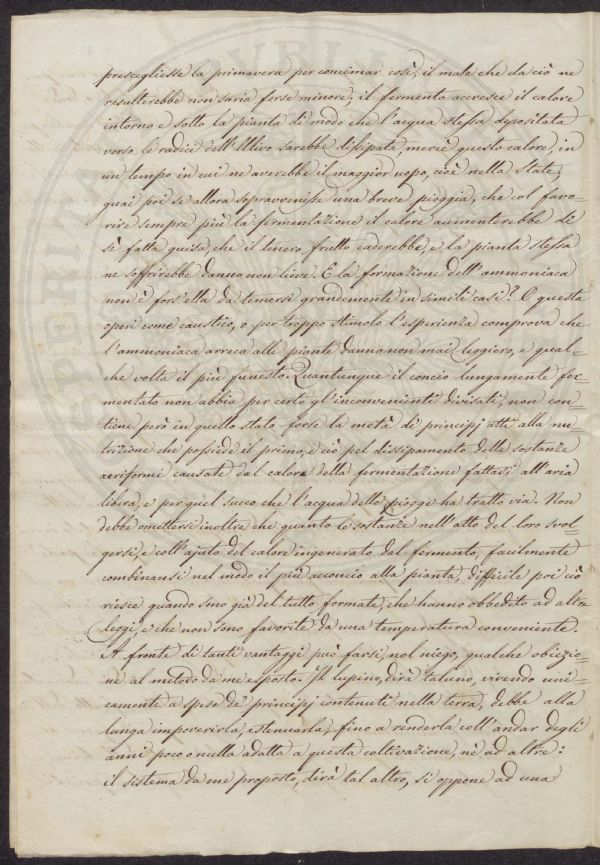 prescegliesse la primavera per concimar così, il male che da ciò ne
resulterebbe non saria forse minore; il fermento accresce il calore
intorno e sotto la pianta di modo che l'acqua stessa depositata
verso le radici dell'Ulivo sarebbe dissipata, mercè questo calore, in
un tempo in cui ne averebbe il maggior uopo, cioè nella State;
guai poi se allora sopravvenisse una breve pioggia, che col favo=
rire sempre più la fermentazione il calore aumenterebbe di
sì fatta guisa, che il tenero frutto caderebbe, e la pianta stessa
ne soffrirebbe danno non lieve. E la formazione dell'ammoniaca
non è fors'ella da temersi grandemente in simili casi? O questa
operi come caustico, o per troppo stimolo l'esperienza comprova che
l'ammoniaca arreca alle piante danno non mai leggiero, e qual=
che volta il più funesto. Quantunque il concio lungamente fer=
mentato non abbia per certo gl'inconvenienti divisati, non con=
tiene però in quello stato forse la metà di principj atti alla nu=
trizione che possiede il primo, e ciò pel dissipamento delle sostanze
aeriformi causate dal calore della fermentazione fattasi all'aria
libera, e per quel succo che l'acqua delle piogge ha tratto via. Non
debbe omettersi inoltre che quanto le sostanze nell'atto del loro svol=
gersi, e coll'ajuto del calore ingenerato dal fermento, facilmente
combinansi nel modo il più acconcio alla pianta, difficile poi ciò
riesce quando sono già del tutto formate, che hanno obbedito ad altre
leggi, e che non sono favorite da una temperatura conveniente.
A fronte di tanti vantaggi può farsi, nol niego, qualche obiezio=
ne al metodo da me esposto. Il lupino, dirà taluno, vivendo uni=
camente a spese de' principj contenuti nella terra, debbe alla
lunga impoverirla, estenuarla, fino a renderla coll'andar degli
anni poco o nulla adatta a questa coltivazione, nè ad altre:
il sistema da me proposto, dirà tal altro, si oppone ad una